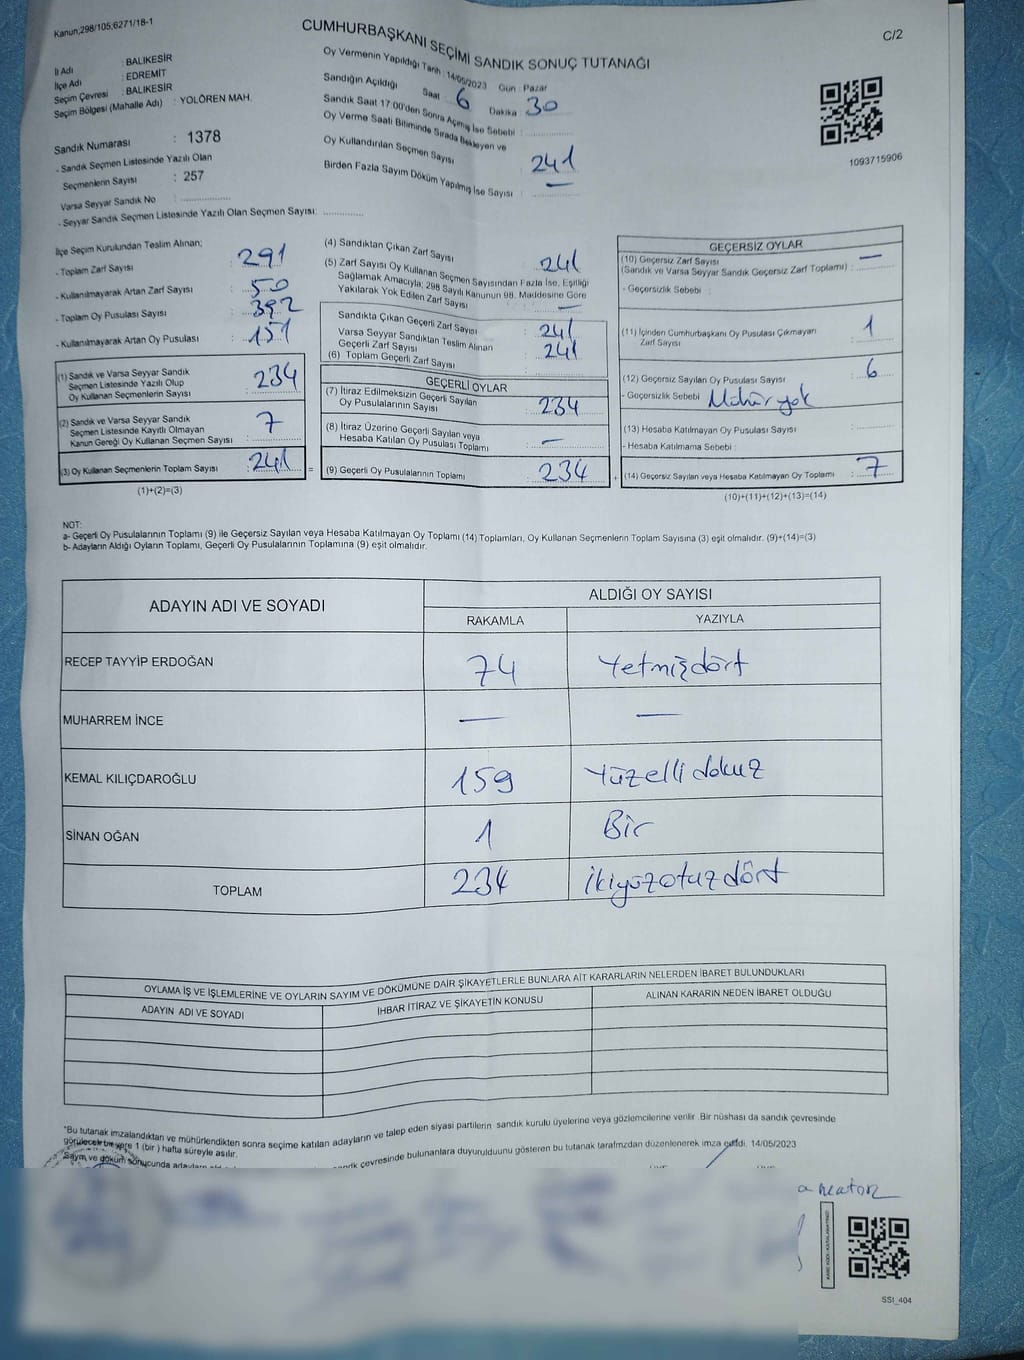 Kanun;298/105;6271/18-1
CUMHURBAŞKANI SEÇİMİ SANDIK SONUÇ TUTANAĞI
C/2
İl Adı : BALIKESİR
İlçe Adı : EDREMİT
Seçim Çevresi : BALIKESİR
Seçim Bölgesi (Mahalle Adı) : YOLÖREN MAH.
Sandık Numarası : 1378
- Sandık Seçmen Listesinde Yazılı Olan
Seçmenlerin Sayısı : 257
Varsa Seyyar Sandık No :
- Seyyar Sandık Seçmen Listesinde Yazılı Olan Seçmen Sayısı:
Oy Vermenin Yapıldığı Tarih : 14/05/2023 Gün : Pazar
Sandığın Açıldığı Saat : 6 Dakika : 30
Sandık Saat 17:00'den Sonra Açılmış İse Sebebi :
Oy Verme Saati Bitiminde Sırada Bekleyen ve
Oy Kullandırılan Seçmen Sayısı : 241
Birden Fazla Sayım Döküm Yapılmış İse Sayısı : —
1093715906
İlçe Seçim Kurulundan Teslim Alınan;
- Toplam Zarf Sayısı : 291
- Kullanılmayarak Artan Zarf Sayısı : 50
- Toplam Oy Pusulası Sayısı : 392
- Kullanılmayarak Artan Oy Pusulası : 151
(1) Sandık ve Varsa Seyyar Sandık
Seçmen Listesinde Yazılı Olup
Oy Kullanan Seçmenlerin Sayısı : 234
(2) Sandık ve Varsa Seyyar Sandık
Seçmen Listesinde Kayıtlı Olmayan
Kanun Gereği Oy Kullanan Seçmen Sayısı : 7
(3) Oy Kullanan Seçmenlerin Toplam Sayısı : 241 =
(1)+(2)=(3)
(4) Sandıktan Çıkan Zarf Sayısı : 241
(5) Zarf Sayısı Oy Kullanan Seçmen Sayısından Fazla İse, Eşitliği
Sağlamak Amacıyla; 298 Sayılı Kanunun 98. Maddesine Göre
Yakılarak Yok Edilen Zarf Sayısı : —
Sandıkta Çıkan Geçerli Zarf Sayısı : 241
Varsa Seyyar Sandıktan Teslim Alınan
Geçerli Zarf Sayısı : 241
(6) Toplam Geçerli Zarf Sayısı :
GEÇERLİ OYLAR
(7) İtiraz Edilmeksizin Geçerli Sayılan
Oy Pusulalarının Sayısı : 234
(8) İtiraz Üzerine Geçerli Sayılan veya
Hesaba Katılan Oy Pusulası Toplamı : —
(9) Geçerli Oy Pusulalarının Toplamı : 234 +
GEÇERSİZ OYLAR
(10) Geçersiz Zarf Sayısı
(Sandık ve Varsa Seyyar Sandık Geçersiz Zarf Toplamı) : —
- Geçersizlik Sebebi :
(11) İçinden Cumhurbaşkanı Oy Pusulası Çıkmayan
Zarf Sayısı : 1
(12) Geçersiz Sayılan Oy Pusulası Sayısı : 6
- Geçersizlik Sebebi : Mühür yok
(13) Hesaba Katılmayan Oy Pusulası Sayısı :
- Hesaba Katılmama Sebebi :
(14) Geçersiz Sayılan veya Hesaba Katılmayan Oy Toplamı : 7
(10)+(11)+(12)+(13)=(14)
NOT:
a- Geçerli Oy Pusulalarının Toplamı (9) ile Geçersiz Sayılan veya Hesaba Katılmayan Oy Toplamı (14) Toplamları, Oy Kullanan Seçmenlerin Toplam Sayısına (3) eşit olmalıdır. (9)+(14)=(3)
b- Adayların Aldığı Oyların Toplamı, Geçerli Oy Pusulalarının Toplamına (9) eşit olmalıdır.
ADAYIN ADI VE SOYADI
ALDIĞI OY SAYISI
RAKAMLA YAZIYLA
RECEP TAYYİP ERDOĞAN 74 Yetmişdört
MUHARREM İNCE — —
KEMAL KILIÇDAROĞLU 159 Yüzelli dokuz
SİNAN OĞAN 1 Bir
TOPLAM 234 ikiyüzotuzdört
OYLAMA İŞ VE İŞLEMLERİNE VE OYLARIN SAYIM VE DÖKÜMÜNE DAİR ŞİKAYETLERLE BUNLARA AİT KARARLARIN NELERDEN İBARET BULUNDUKLARI
ADAYIN ADI VE SOYADI İHBAR İTİRAZ VE ŞİKAYETİN KONUSU ALINAN KARARIN NEDEN İBARET OLDUĞU
"Bu tutanak imzalandıktan ve mühürlendikten sonra seçime katılan adayların ve talep eden siyasi partilerin sandık kurulu üyelerine veya gözlemcilerine verilir. Bir nüshası da sandık çevresinde
görülecek bir yere 1 (bir ) hafta süreyle asılır.
Sayım ve döküm sonucunda çevresinde bulunanlara duyurulduunu gösteren bu tutanak tarafmzdan düzenlenerek imza edildi. 14/05/2023
SSİ_404